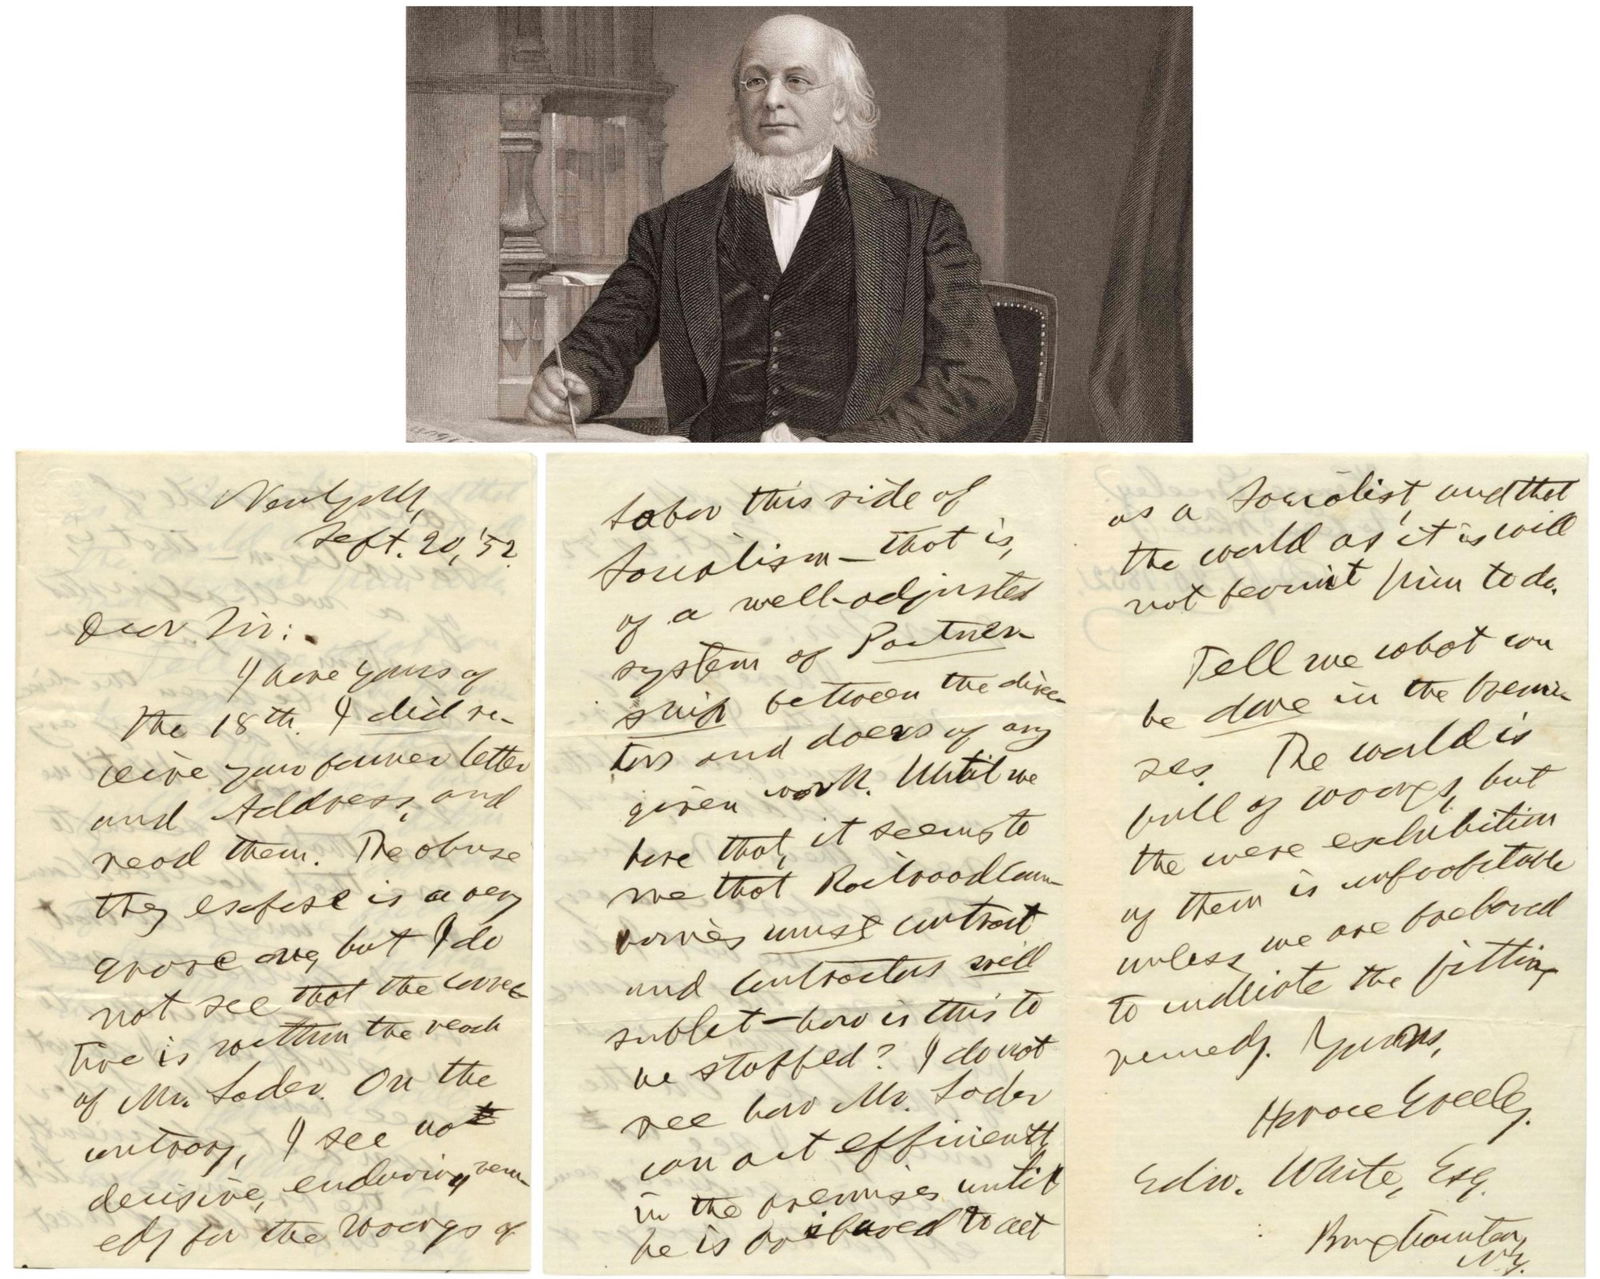 New York,
Sept. 20, '52.
Dear Sir:
I have yours of
the 18th. I did re-
ceive your former letter
and Address, and
read them. The abuse
they expose is a very
grave one, but I do
not see that the correc-
tive is within the reach
of Mr. Loder. On the
contrary, I see no
decisive, enduring rem-
edy for the wrongs of
Labor this side of
Socialism — that is,
of a well-adjusted
system of Partner-
ship between the direc-
tors and doers of any
given work. Until we
have that, it seems to
me that Railroad Com-
panies must contract
and contractors will
sublet — how is this to
be stopped? I do not
see how Mr. Loder
can act efficiently
in the premises until
he is prepared to act
as a Socialist, and that
the world as it is will
not permit him to do.
Tell me what can
be done in the premi-
ses. The world is
full of wrongs, but
the mere exhibition
of them is unprofitable
unless we are prepared
to indicate the fitting
remedy. Yours,
Horace Greeley.
Edw. White, Esq.
Binghamton,
N.Y.